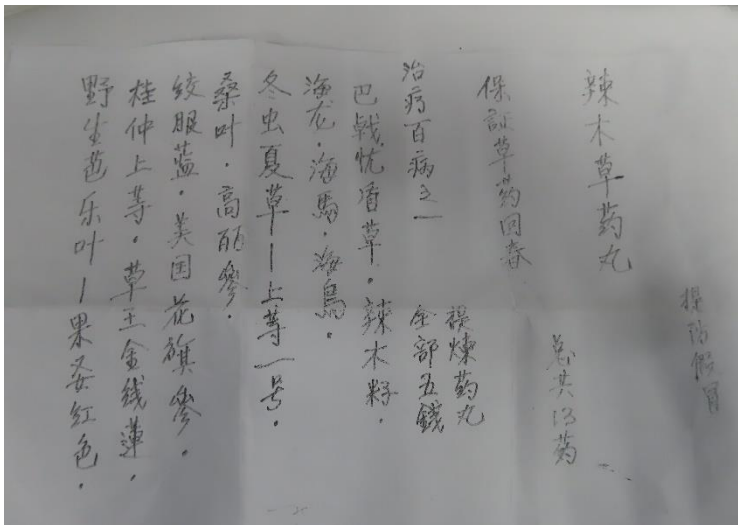 提防假冒
辣木草药丸
总共13药
保証草药回春
提煉药丸
全部五錢
治疗百病之一
巴戟忧盾草·辣木籽·
海龙·海馬·海鳥·
冬虫夏草—上等一号·
桑叶·高丽參·
绞服蓝·美国花旗參·
桂仲上等·草王金线蓮·
野生芭乐叶—果要红色·